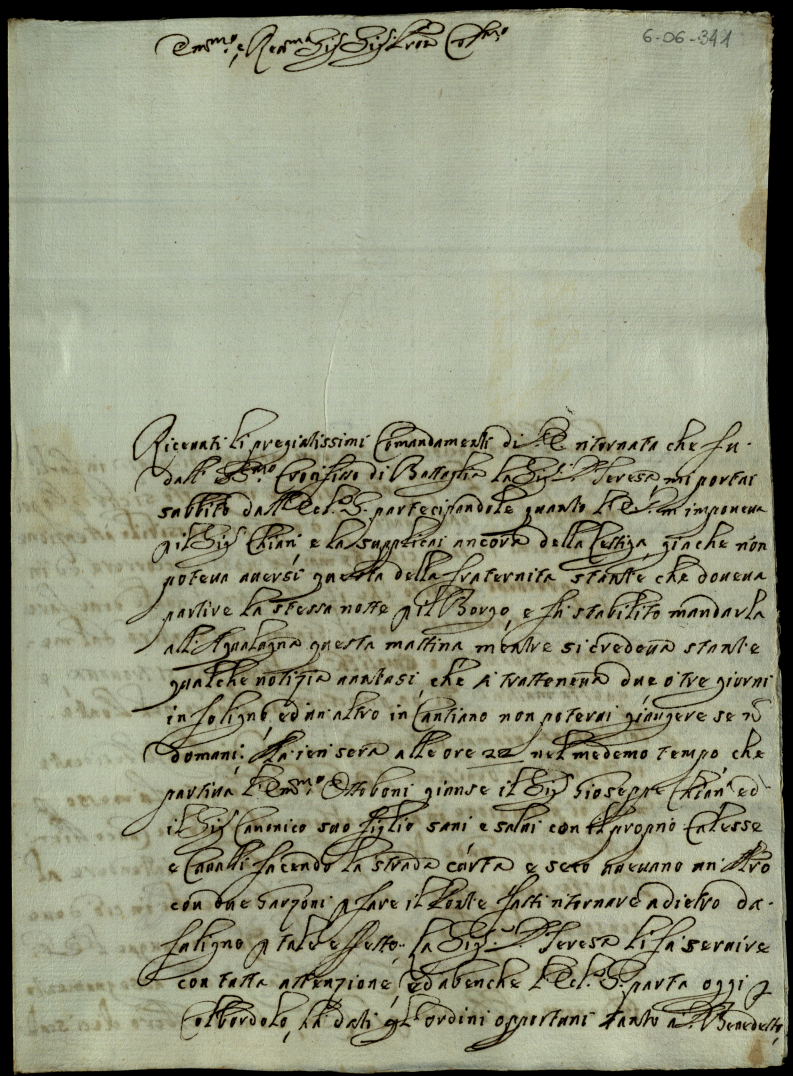 6-06-341
Em.mo e Rev.mo Sig.r Sig.r Pron Col.mo
Riceuuti li pregiatissimi Comandamenti di V.E. ritornata che fu
dall' SS.mo Crocifisso di Battaglia la Sig.ra D. Teresa, mi portai
subbito dall' Ecl.a S. partecipandole quanto l'E.V. m'imponeua
p il Sig.r Chiari, e la supplicai ancora della lettiga, giache non
poteua auersi questa della fraternita stante che doueua
partire la stessa notte p il Borgo, e fu stabilito mandarla
all' Aqualagna questa mattina mentre si credeua stante
qualche notizia auutasi, che si tratteneua due o tre giorni
in foligno, ed un altro in Cantiano non poterui giungere se n
domani: Ma ieri sera alle ore 22 nel medemo tempo, che
partiua l'Em.mo Ottoboni giunse il Sig.r Gioseppe Chiari ed
il Sig.r Canonico suo figlio sani e salui con il proprio Calesse
e Caualli facendo la strada curta e seco aueuano un Altro
con due Garzoni p fare il fatti ritornare adietro da
fuligno p tale effetto. la Sig.ra D. Teresa li fa seruire
con tutta attenzione, ed abenche l'Ecl.a S. parta oggi p
Colbordolo, ha dati gl' ordini opportuni tanto a D. Benedetto,